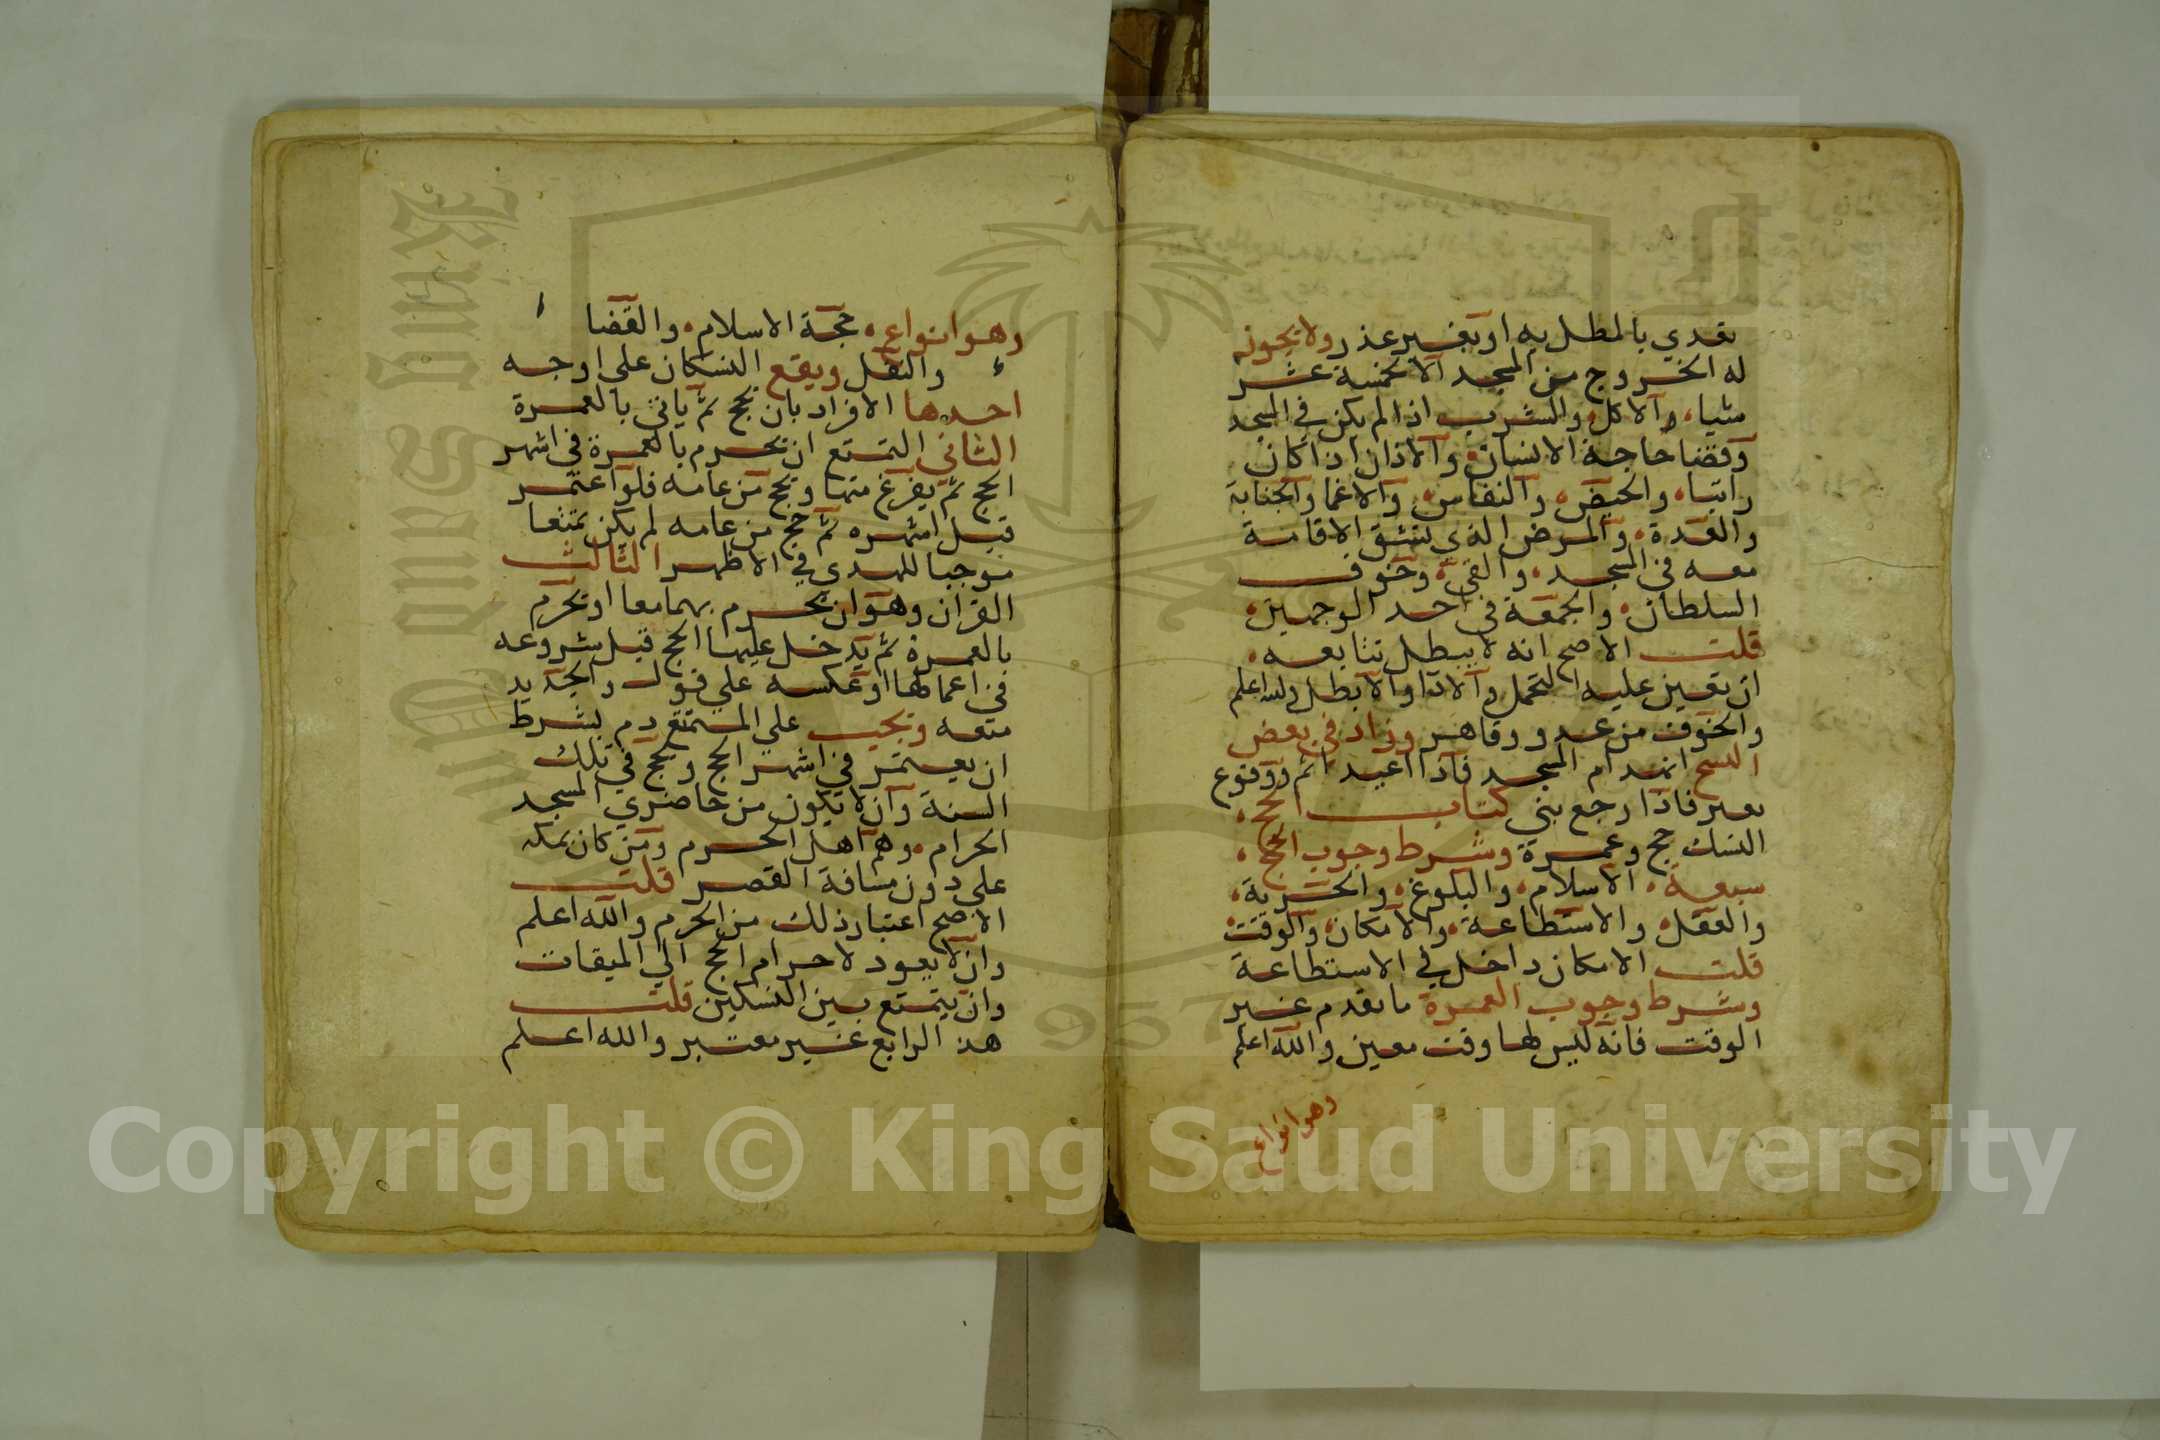 تعدي بالمطل به او بغير عذر ولا يجوز
له الخروج من المسجد الا لخمسة عشر
شيا، والاكل والشرب اذا لم يكن في المسجد
وقضا حاجة الانسان والاذان اذا كان
راتبا، والحيض، والنفاس، والاغما والجنابة
والعدة، والمرض الذي تشق الاقامة
معه في المسجد، والقيء، وخوف
السلطان، والجمعة في احد الوجهين،
قلت الاصح انه لا يبطل تتابعه،
ان تعين عليه التحمل والادا والا بطل والله اعلم
والخوف من عدو وقاهر وزاد في بعض
النسخ انهدام المسجد فاذا اعيد اتم ووقوع
نعير فاذا رجع بني كتاب الحج،
النسك حج وعمرة وشرط وجوب الحج،
سبعة، الاسلام، والبلوغ، والحرية،
والعقل، والاستطاعة، والامكان، والوقت
قلت الامكان داخل في الاستطاعة
وشرط وجوب العمرة ما تقدم غير
الوقت فانه ليس لها وقت معين والله اعلم
وهو انواع
وهو انواع، حجة الاسلام، والقضا
ء والنفل ويقع النسكان على اوجه
احدها الافراد بان يحج ثم ياتي بالعمرة
الثاني التمتع ان يحرم بالعمرة في اشهر
الحج ثم يفرغ منها ويحج من عامه فلو اعتمر
قبل اشهره ثم حج من عامه لم يكن تمتعا
موجبا للهدي في الاظهر الثالث
القران وهو ان يحرم بهما معا او يحرم
بالعمرة ثم يدخل عليها الحج قبل شروعه
في اعمالها او عكسه على قول والجديد
منعه ويجب على المتمتع دم بشرط
ان يعتمر في اشهر الحج ويحج في تلك
السنة وان لا يكون من حاضري المسجد
الحرام، وهم اهل الحرم ومن كان بمكة
على دون مسافة القصر قلت
الاصح اعتبار ذلك من الحرم والله اعلم
وان لا يعود لاحرام الحج الي الميقات
وان يتمتع بين النسكين قلت
هذ الرابع غير معتبر والله اعلم
Copyright © King Saud University
King Saud University
1957